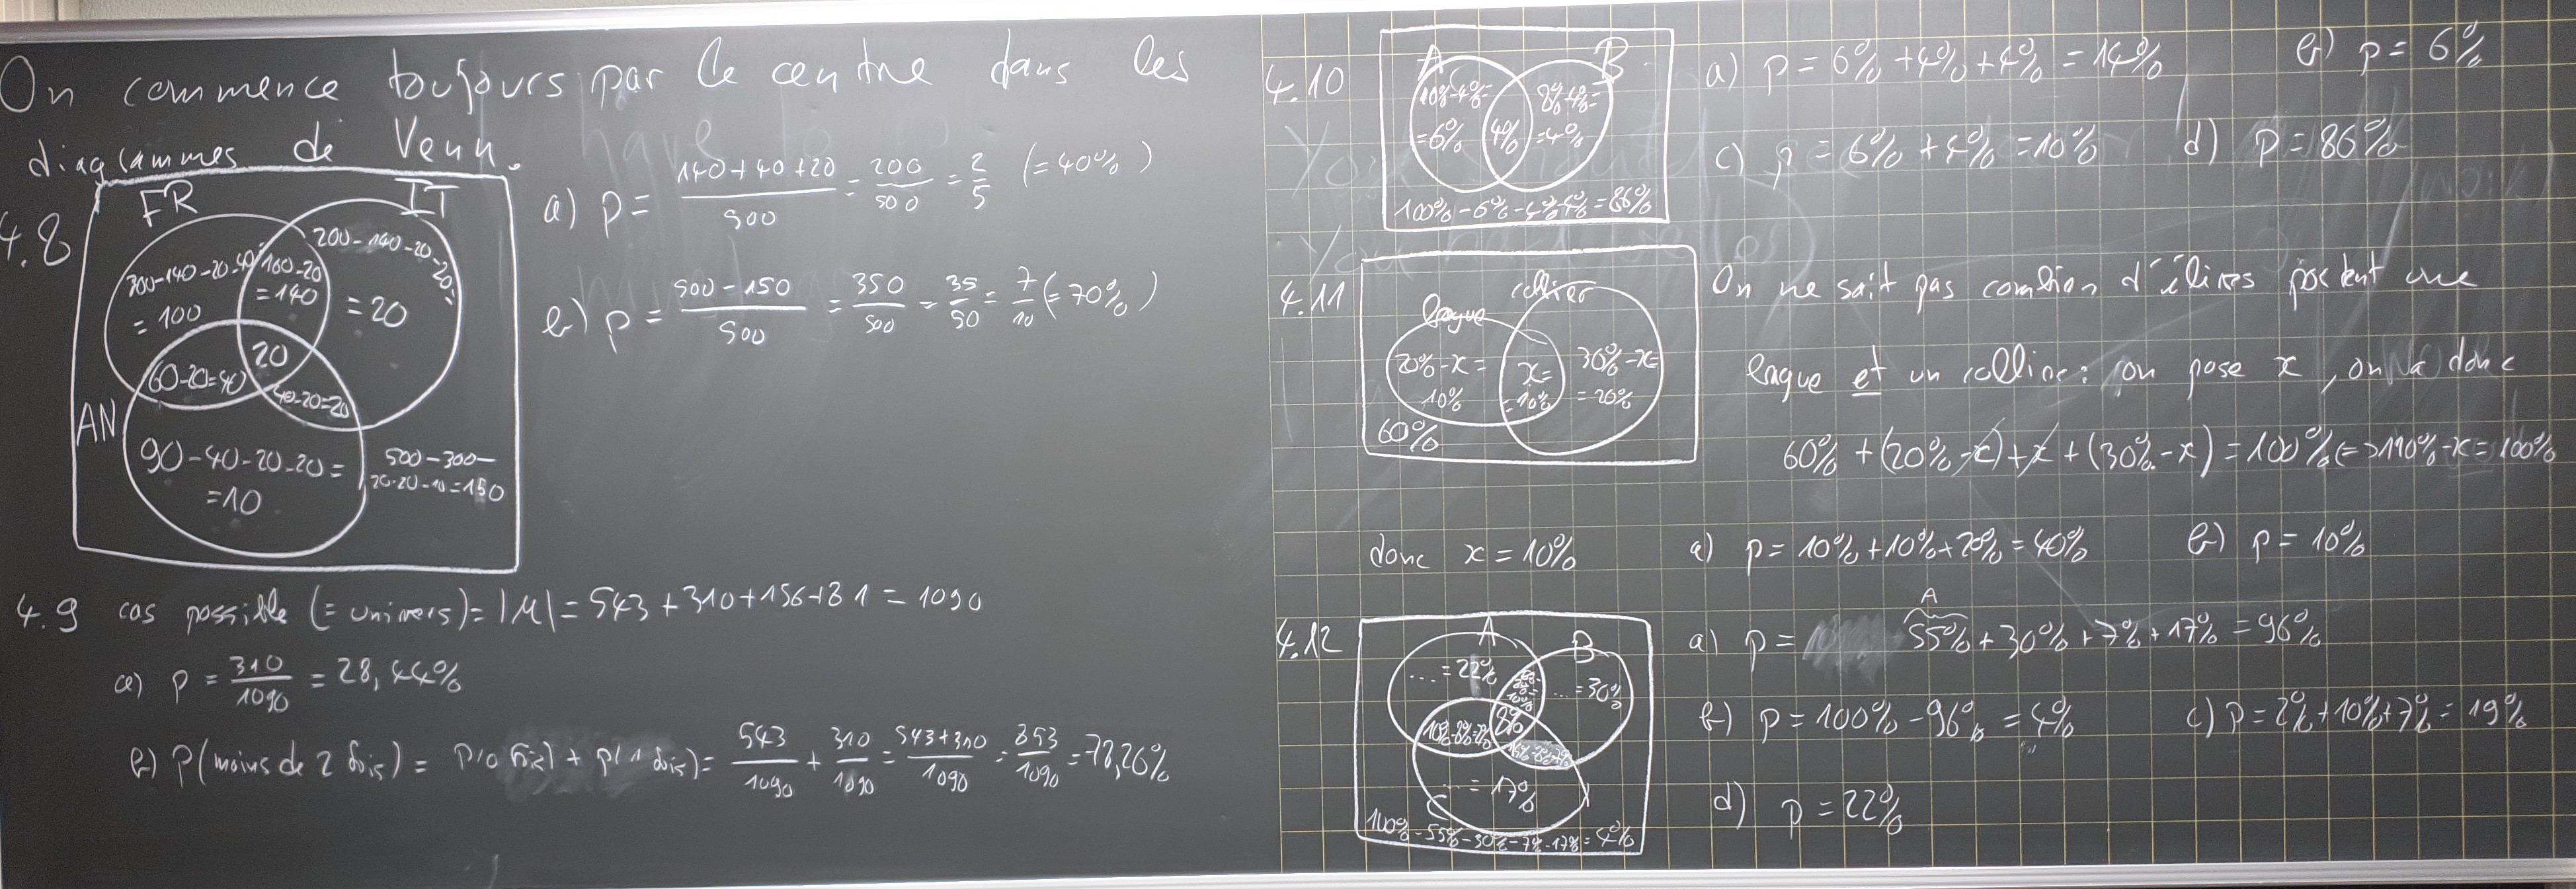 On commence toujours par le centre dans les
diagrammes de Venn.
4.8
FR
IT
300-140-20-40
= 100
160-20
= 140
200-140-20-20=
= 20
20
60-20=40
40-20=20
AN
90-40-20-20=
=10
500-300-
20-20-10=150
a) p = (140+40+20)/500 = 200/500 = 2/5 (=40%)
b) p = (500-150)/500 = 350/500 = 35/50 = 7/10 (=70%)
4.9 cas possible (= univers) = |U| = 543+310+156+81 = 1090
a) p = 310/1090 = 28,44%
b) P(moins de 2 fois) = p(0 fois) + p(1 fois) = 543/1090 + 310/1090 = (543+310)/1090 = 853/1090 = 78,26%
4.10
A
B
10%-4%=
=6%
4%
8%-4%=
=4%
100%-6%-4%-4%=86%
a) p = 6%+4%+4% = 14%
b) p = 6%
c) p = 6%+4% = 10%
d) p = 86%
4.11
bague
collier
20%-x=
10%
x=
=10%
30%-x=
= 20%
60%
On ne sait pas combien d'élèves portent une
bague et un collier: on pose x, on a donc
60%+(20%-x)+x+(30%-x)=100% <=> 110%-x=100%
donc x = 10%
a) p = 10%+10%+20% = 40%
b) p = 10%
4.12
A
B
... = 22%
... = 30%
10%
8%
10%-8%=2%
15%-8%=7%
... = 17%
C
100%-55%-30%-7%-17%=4%
A
a) p = 55%+30%+7%+17% = 96%
b) p = 100%-96% = 4%
c) p = 2%+10%+7% = 19%
d) p = 22%